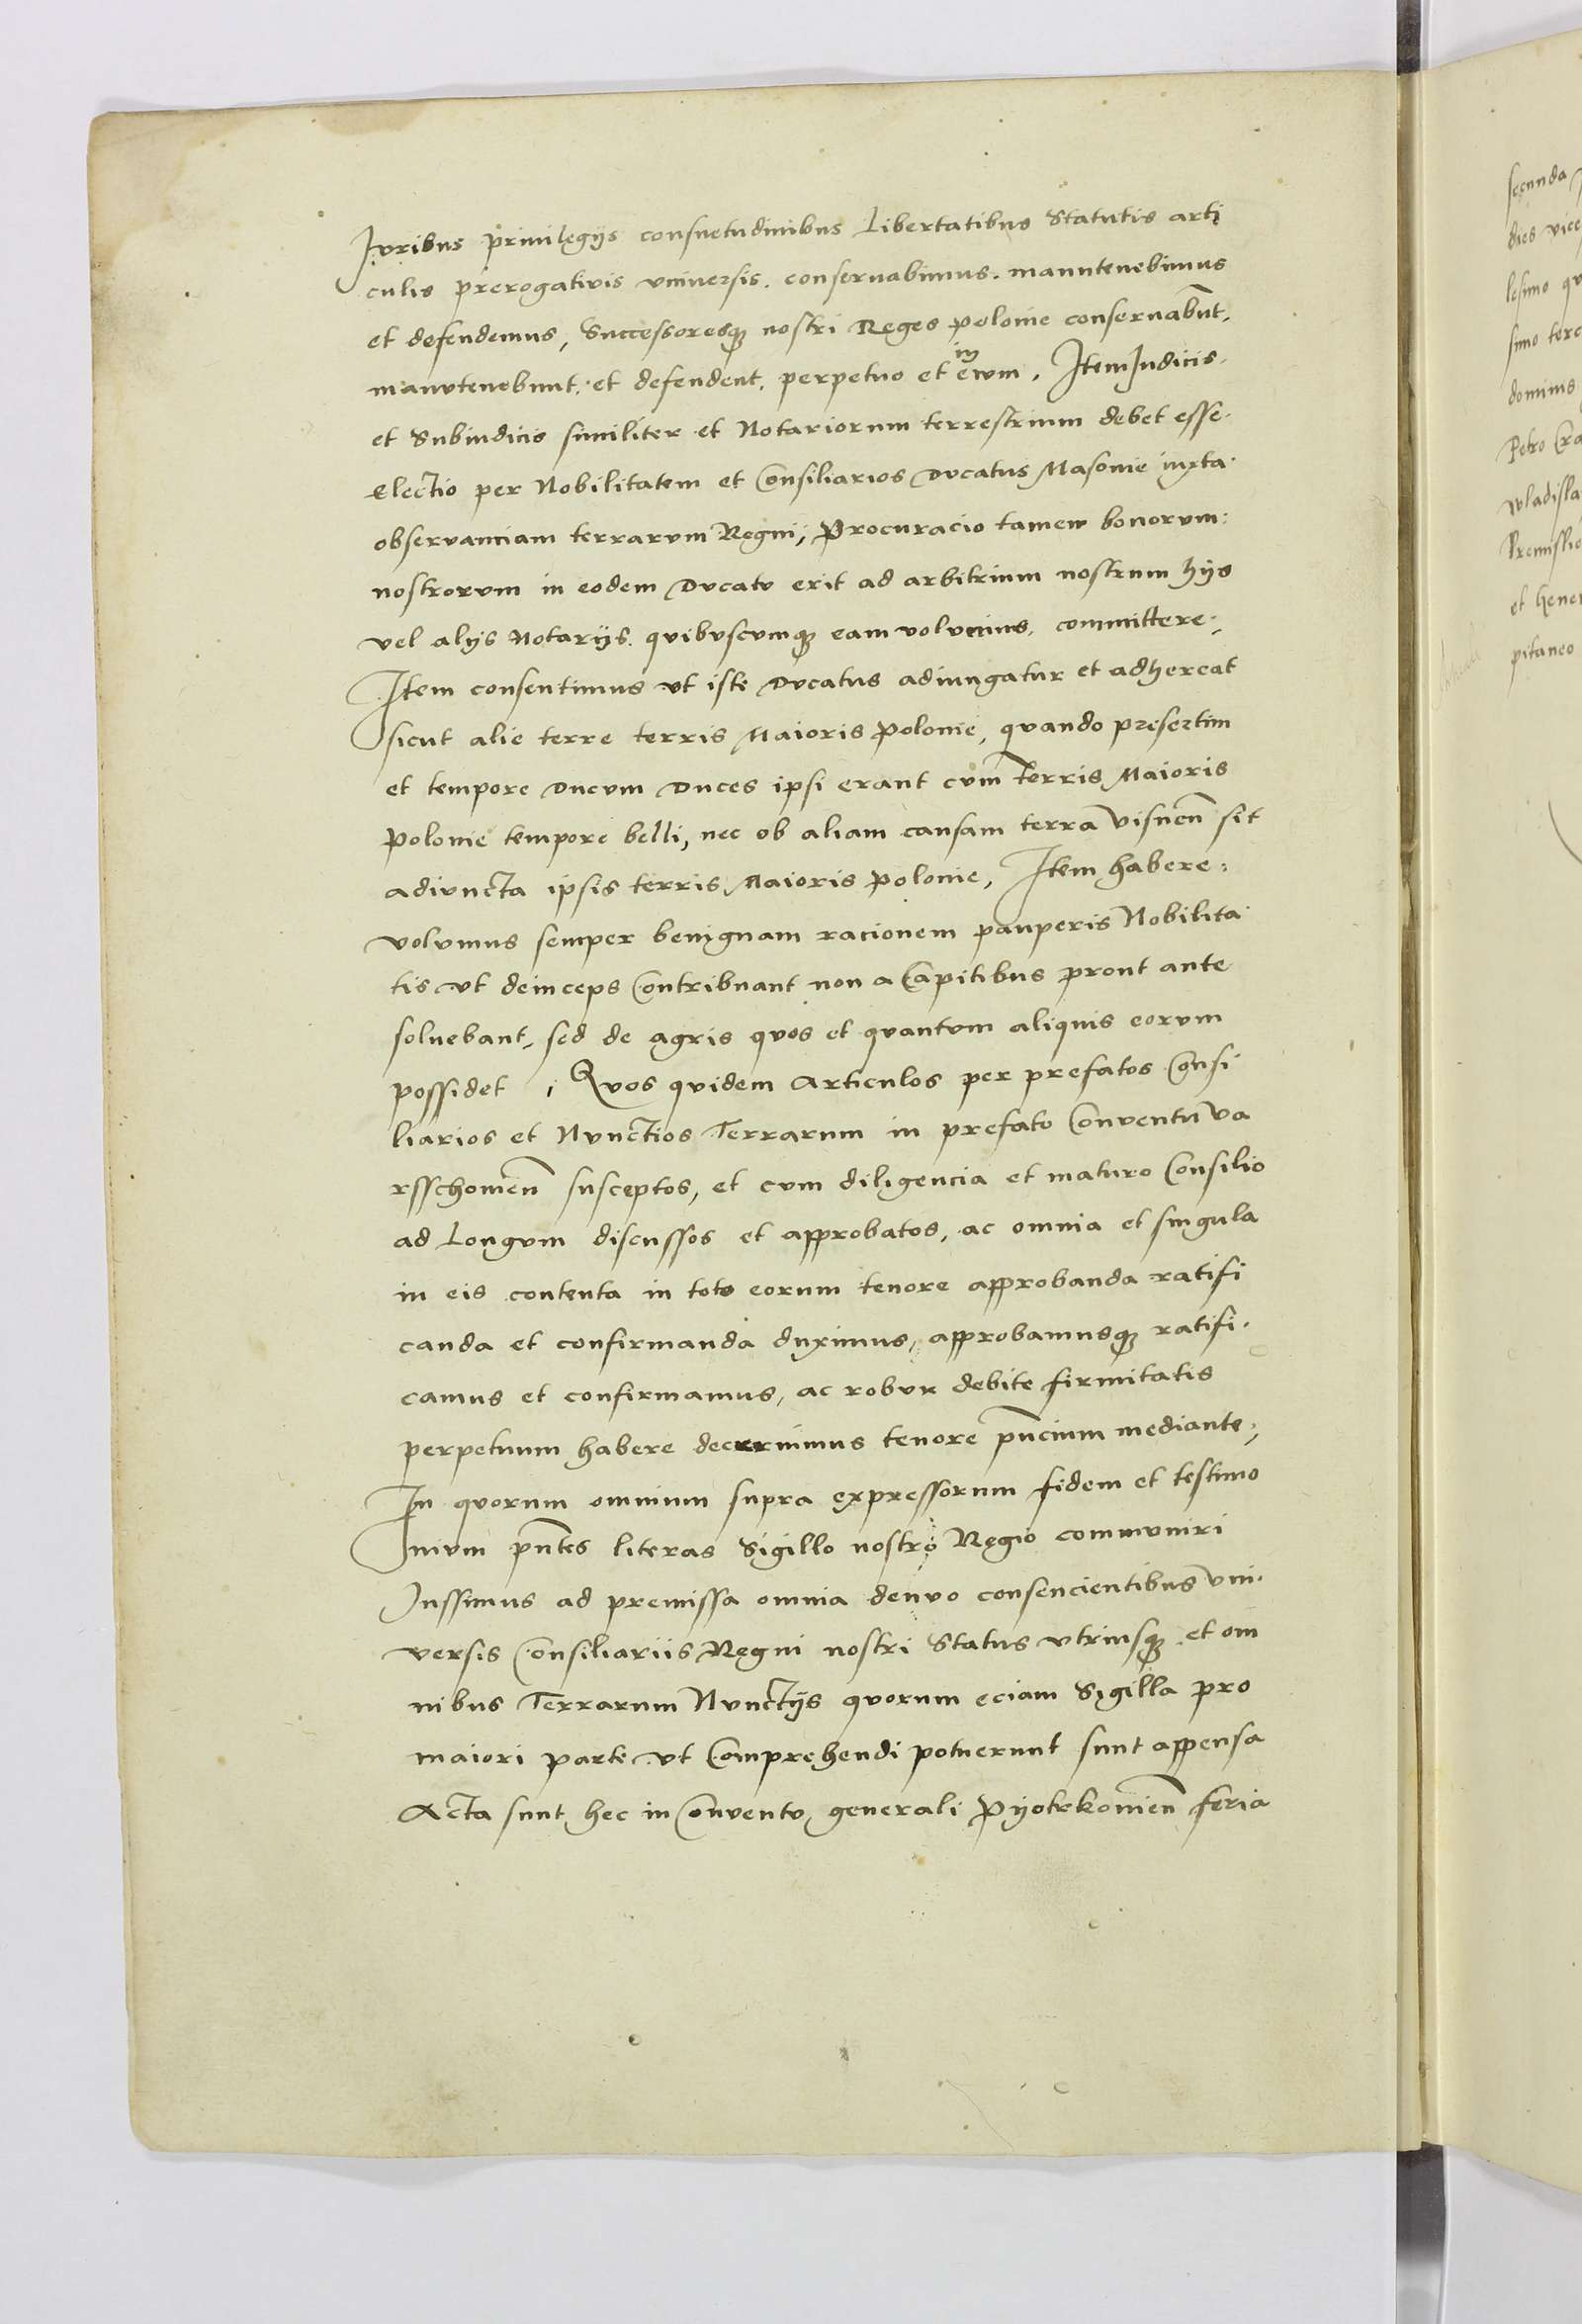 Iuribus priuilegijs consuetudinibus Libertatibus Statutis arti
culis prerogativis vniuersis. conseruabimus. manutenebimus
et defendemus, Successoresq3 nostri Reges Polonie conseruabūt.
manutenebunt. et defendent. perpetuo et in evum. Item Iudicis.
et Subiudicis similiter et Notariorum terrestrium debet esse.
Electio per Nobilitatem et Consiliarios Ducatus Masouie iuxta.
obseruanciam terrarum Regni, Procuracio tamen bonorum:
nostrorum in eodem Ducatu erit ad arbitrium nostrum hijs
vel alijs Notarijs. quibuscumq3 eam volumus. committere.,
Item consentimus ut iste Ducatus adiungatur et adhereat
sicut alie terre terris Maioris Polonie, quando presertim
et tempore Ducum Duces ipsi erant cum terris Maioris
Polonie tempore belli, nec ob aliam causam terra Visneñ sit
adiuncta ipsis terris Maioris Polonie, Item habere:
volumus semper benignam racionem pauperis Nobilita
tis ut deinceps Contribuant non a Capitibus prout ante
soluebant, sed de agris quos et quantum aliquis eorum
possidet, Quos quidem Articulos per prefatos Consi
liarios et Nunctios Terrarum in prefato Conuentu Va
rsschouieñ susceptos, et cum diligencia et maturo Consilio
ad Longum discussos et approbatos, ac omnia et singula
in eis contenta in toto eorum tenore approbanda ratifi
canda et confirmanda duximus, approbamusq3 ratifi.
camus et confirmamus, ac robur debite firmitatis
perpetuum habere decernimus tenore pñcium mediante.,
In quorum omnium supra expressorum fidem et testimo
nium pñtes literas Sigillo nostro Regio communiri
Iussimus ad premissa omnia denuo consencientibus vni.
versis Consiliariis Regni nostri Status vtriusq3 et om
nibus Terrarum Nunctijs quorum eciam Sigilla pro
maiori parte ut Comprehendi potuerunt sunt appensa
Acta sunt hec in Conuentu generali Pijotrkouieñ feria
secunda
dies vice
lesimo qu
simo terc
dominis
Petro Cra
wladisla
Premislie
et hene
pitaneo